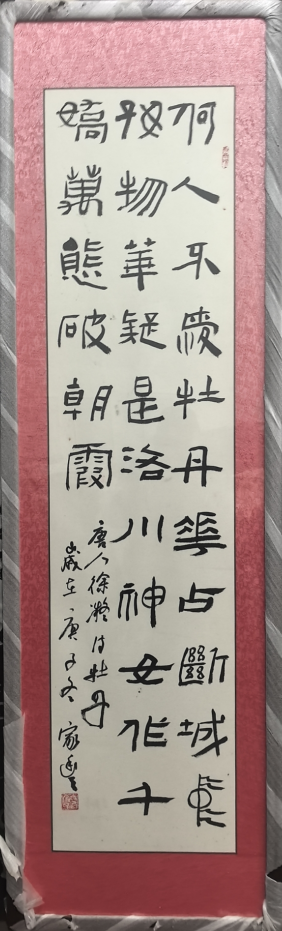 何人不愛牡丹花占斷城中
好物華疑是洛川神女作千
嬌萬態破朝霞
唐人徐凝诗牡丹
歲在庚子冬 家